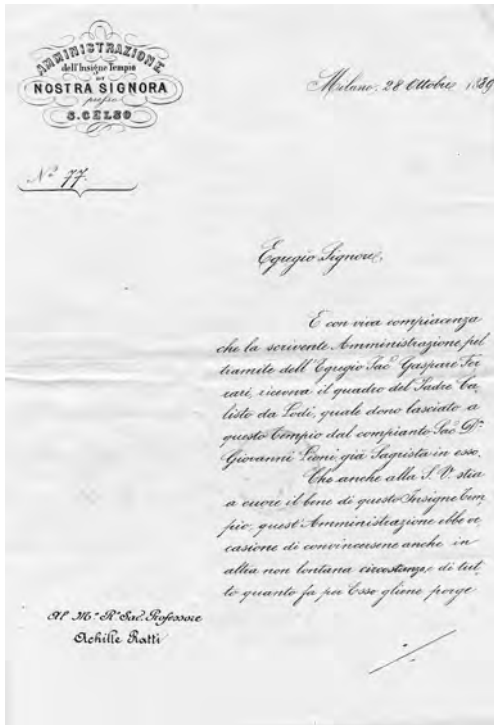 AMMINISTRAZIONE
dell'Insigne Tempio
DI
NOSTRA SIGNORA
presso
S. CELSO
Milano, 28 Ottobre 1889
N.° 77.
Egregio Signore,
È con viva compiacenza
che la scrivente Amministrazione pel
tramite dell'Egregio Sac. Gaspare Fer-
rari, riceveva il quadro del Padre Ca-
listo da Lodi, quale dono lasciato a
questo Tempio dal compianto Sac. D.r
Giovanni Leoni già Sagrista in esso.
Che anche alla S. V. stia
a cuore il bene di questo Insigne Tem-
pio, quest'Amministrazione ebbe oc-
casione di convincersene anche in
altra non lontana circostanza, e di tut-
to quanto fa per Esso gliene porge
Al M.o R.o Sac. Professore
Achille Ratti